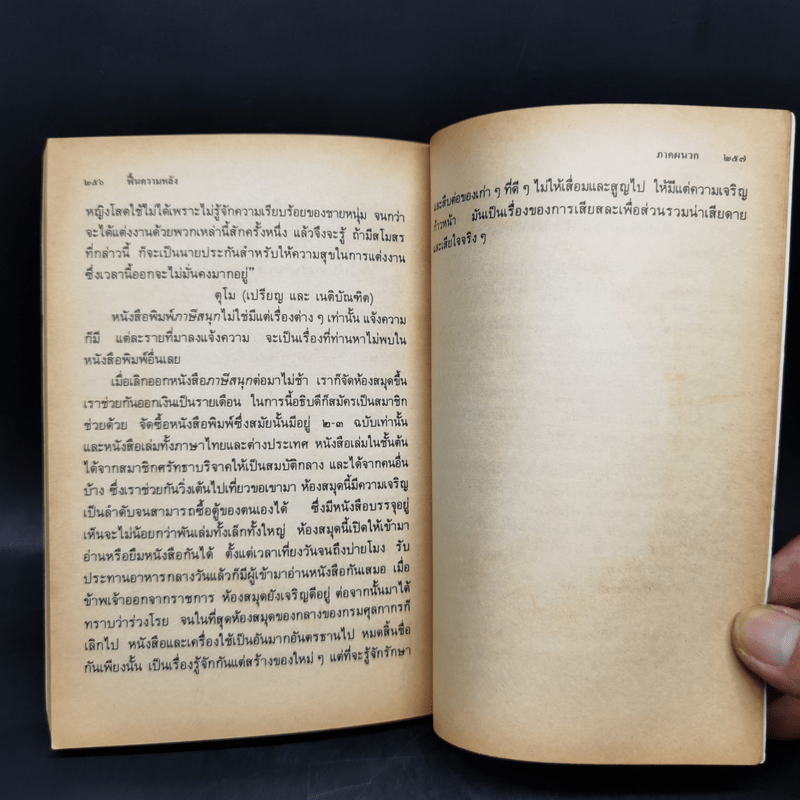 ๒๕๖ ฟื้นความหลัง
หญิงโสดใช้ไม่ได้เพราะไม่รู้จักความเรียบร้อยของชายหนุ่ม จนกว่า
จะได้แต่งงานด้วยพวกเหล่านี้สักครั้งหนึ่ง แล้วจึงจะรู้ ถ้ามีสโมสร
ที่กล่าวนี้ ก็จะเป็นนายประกันสำหรับให้ความสุขในการแต่งงาน
ซึ่งเวลานี้ออกจะไม่มั่นคงมากอยู่"
ตุโม (เปรียญ และ เนติบัณฑิต)
หนังสือพิมพ์ภาษีสนุกไม่ใช่มีแต่เรื่องต่าง ๆ เท่านั้น แจ้งความ
ก็มี แต่ละรายที่มาลงแจ้งความ จะเป็นเรื่องที่ท่านหาไม่พบใน
หนังสือพิมพ์อื่นเลย
เมื่อเลิกออกหนังสือภาษีสนุกต่อมาไม่ช้า เราก็จัดห้องสมุดขึ้น
เราช่วยกันออกเงินเป็นรายเดือน ในการนี้อธิบดีก็สมัครเป็นสมาชิก
ช่วยด้วย จัดซื้อหนังสือพิมพ์ซึ่งสมัยนั้นมีอยู่ ๒-๓ ฉบับเท่านั้น
และหนังสือเล่มทั้งภาษาไทยและต่างประเทศ หนังสือเล่มในชั้นต้น
ได้จากสมาชิกศรัทธาบริจาคให้เป็นสมบัติกลาง และได้จากคนอื่น
บ้าง ซึ่งเราช่วยกันวิ่งเต้นไปเที่ยวขอเขามา ห้องสมุดนี้มีความเจริญ
เป็นลำดับจนสามารถซื้อตู้ของตนเองได้ ซึ่งมีหนังสือบรรจุอยู่
เห็นจะไม่น้อยกว่าพันเล่มทั้งเล็กทั้งใหญ่ ห้องสมุดนี้เปิดให้เข้ามา
อ่านหรือยืมหนังสือกันได้ ตั้งแต่เวลาเที่ยงวันจนถึงบ่ายโมง รับ
ประทานอาหารกลางวันแล้วก็มีผู้เข้ามาอ่านหนังสือกันเสมอ เมื่อ
ข้าพเจ้าออกจากราชการ ห้องสมุดยังเจริญดีอยู่ ต่อจากนั้นมาได้
ทราบว่าร่วงโรย จนในที่สุดห้องสมุดของกลางของกรมศุลกากรก็
เลิกไป หนังสือและเครื่องใช้เป็นอันมากอันตรธานไป หมดสิ้นชื่อ
กันเพียงนั้น เป็นเรื่องรู้จักกันแต่สร้างของใหม่ ๆ แต่ที่จะรู้จักรักษา
ภาคผนวก ๒๕๗
และสืบต่อของเก่า ๆ ที่ดี ๆ ไม่ให้เสื่อมและสูญไป ให้มีแต่ความเจริญ
ก้าวหน้า มันเป็นเรื่องของการเสียสละเพื่อส่วนรวมน่าเสียดาย
และเสียใจจริง ๆ